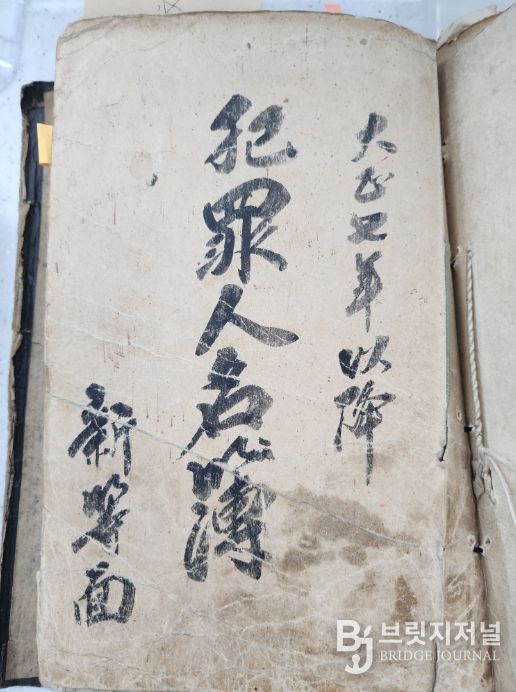 大正七年以降
犯罪人名簿
新等面
브릿지저널
BRIDGE JOURNAL